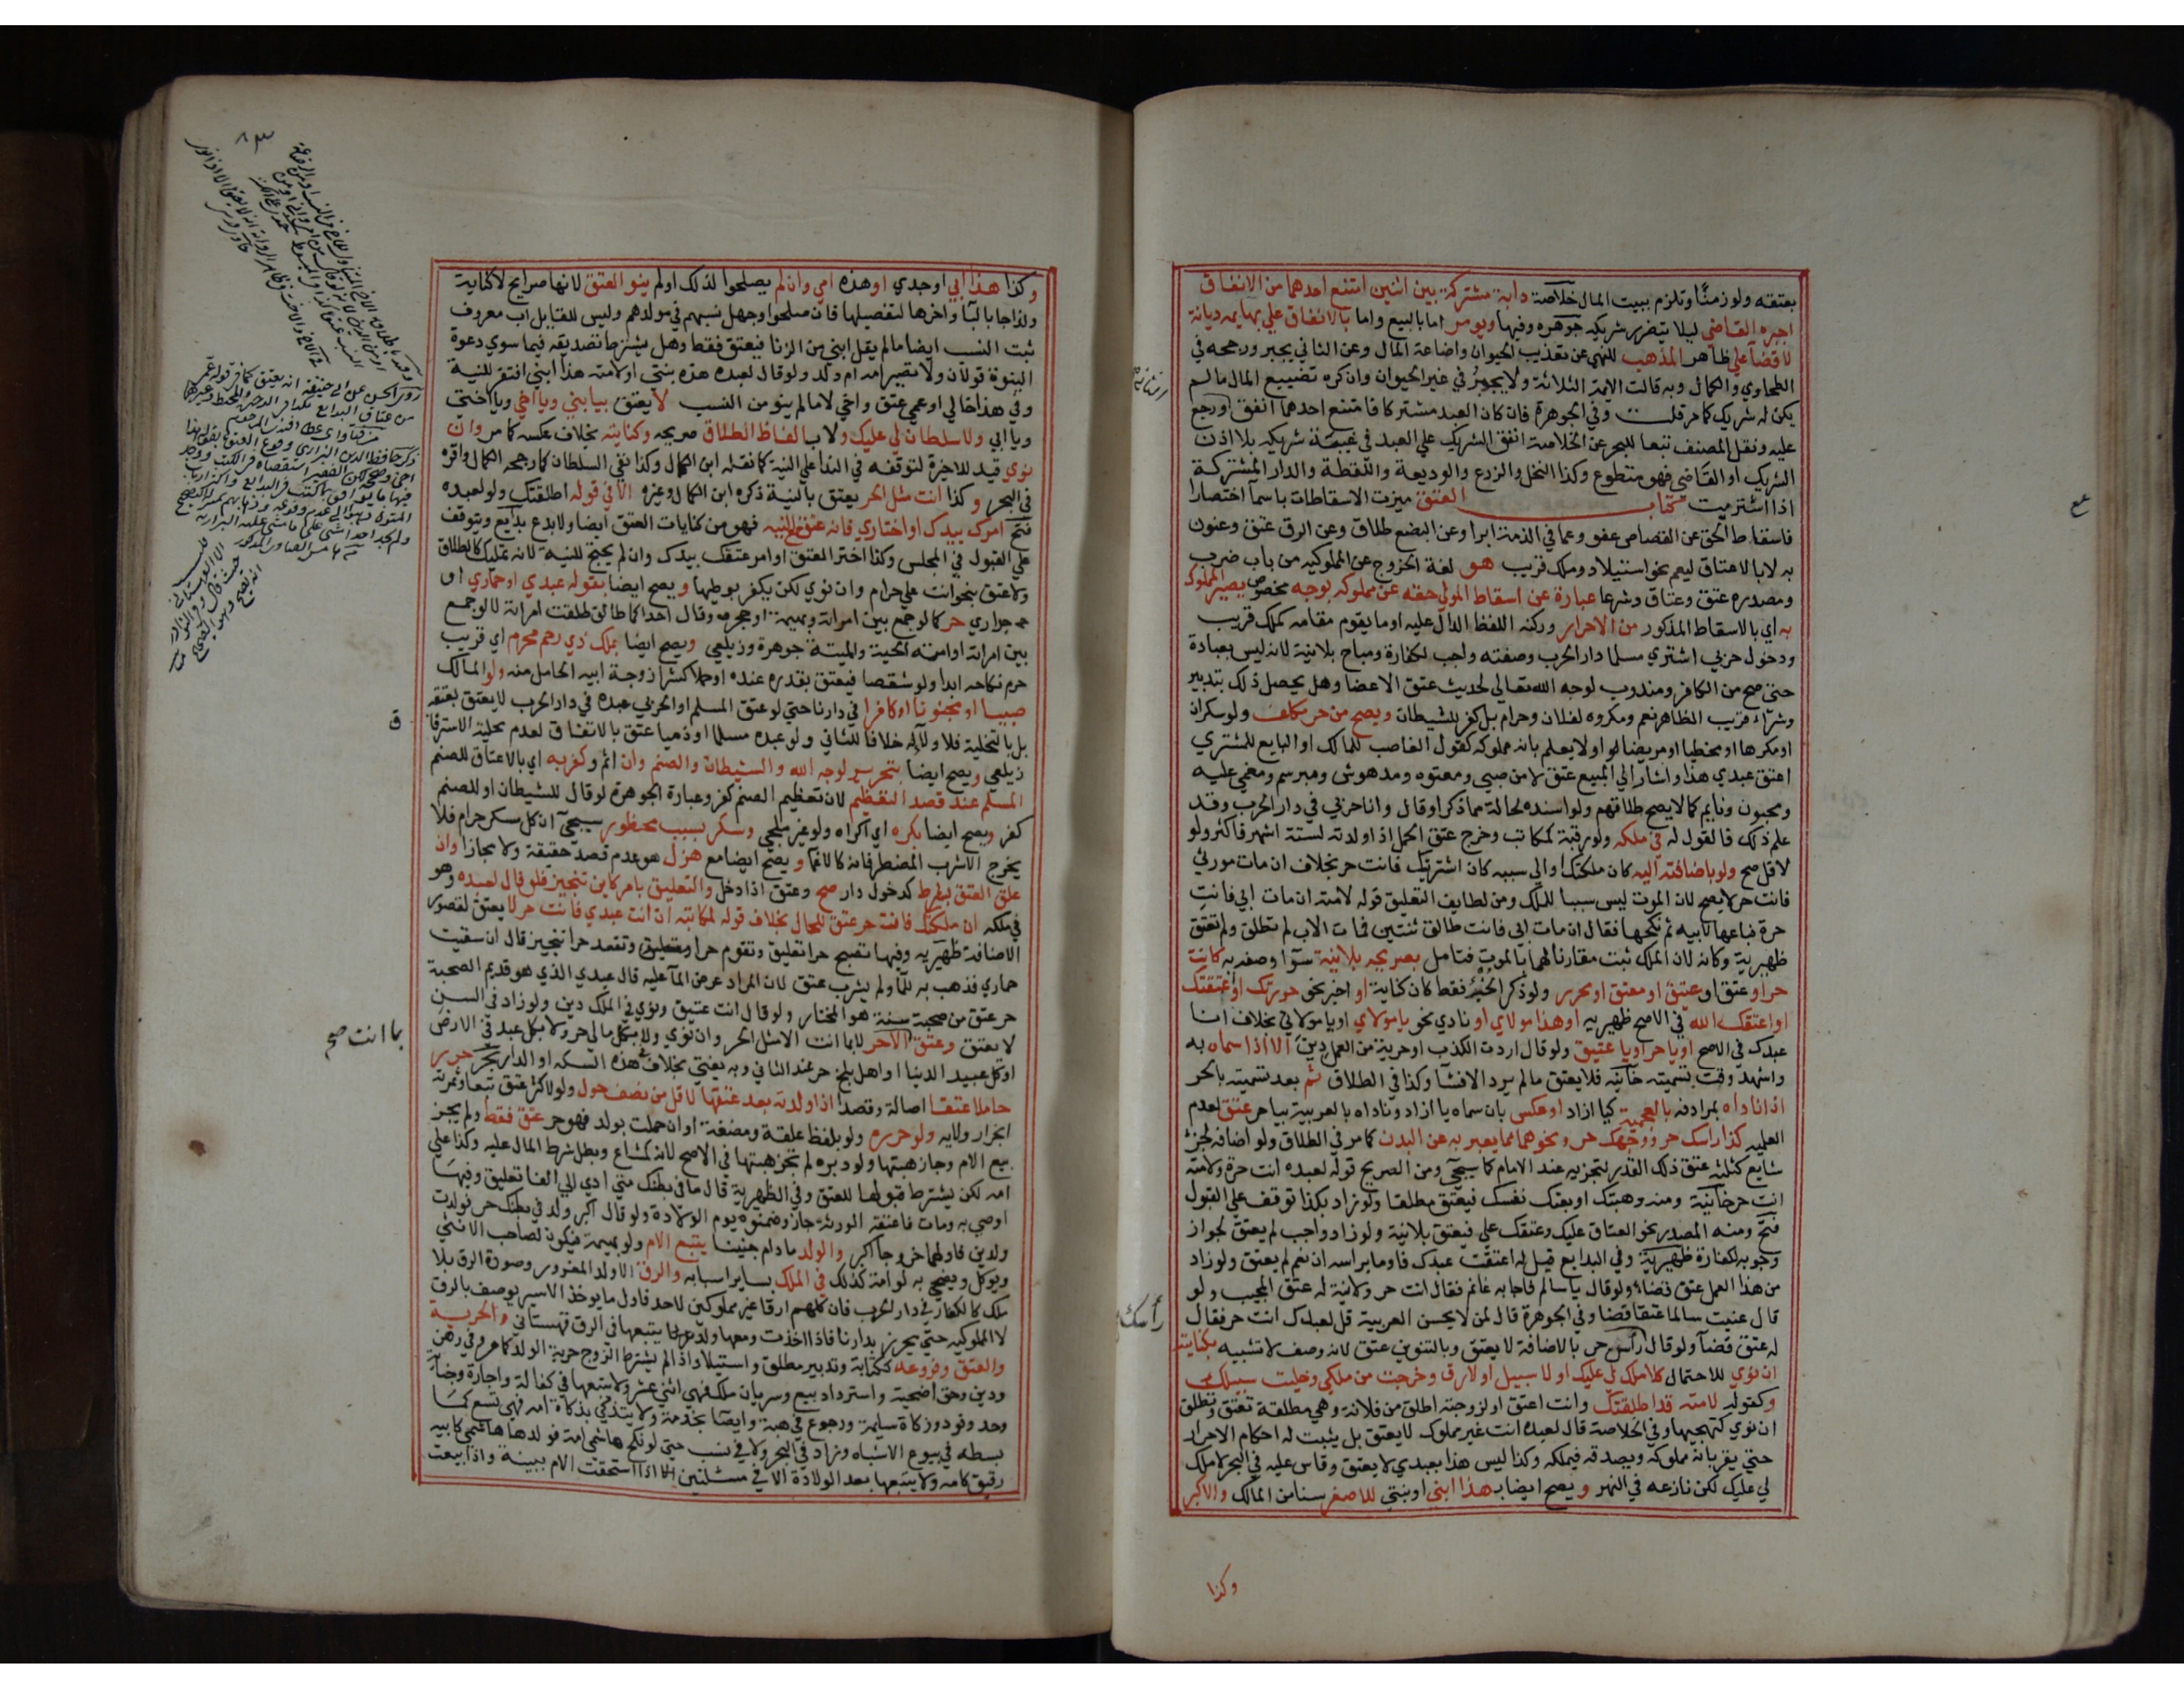 بعتقه ولو زمنا وتلزم ببيت المال خلاصة دابة مشتركة بين اثنين امتنع احدهما من الانفاق
اجبره القاضي ليلا يتضرر شريكه جوهره وفيها ويومر اما بالبيع واما بالانفاق علي بهايمه ديانة
لا قضآ علي ظاهر المذهب للنهي عن تعذيب الحيوان واضاعة المال وعن الثاني يجبر ورجحه في
الطحاوي والكمال وبه قالت الايمة الثلاثة ولا يجبر في غير الحيوان وان كره تضييع المال مالم
يكن له شريك كما مر قلت وفي الجوهرة فان كان العبد مشتركا فامتنع احدهما انفق اورجع
عليه ونقل المصنف تبعا للبحر عن الخلاصة انفق الشريك علي العبد في غيبة شريكه بلا اذن
الشريك او القاضي فهو متطوع وكذا النخل والزرع والوديعة واللقطة والدار المشتركة
اذا استرمت كتاب العتق ميزت الاسقاطات باسمآ اختصارا
فاسقاط الحق عن القصاص عفو وعما في الذمة ابرا وعن البضع طلاق وعن الرق عتق وعنون
به لا بالاعتاق ليعم نحو استيلاد وملك قريب هو لغة الخروج عن المملوكيه من باب ضرب
ومصدره عتق وعتاق وشرعا عبارة عن اسقاط المولي حقه عن مملوكه بوجه مخصوص يصير المملوك
به اي بالاسقاط المذكور من الاحرار وركنه اللفظ الدال عليه او ما يقوم مقامه كملك قريب
ودخول حربي اشتري مسلما دار الحرب وصفته واجب لكفارة ومباح بلا نية لانه ليس بعبادة
حتي صح من الكافر ومندوب لوجه الله تعالي لحديث عتق الاعضا وهل يحصل ذلك بتدبير
وشراء قريب الظاهر نعم ومكروه لفلان وحرام بل كفر للشيطان ويصح من حر مكلف ولو سكران
او مكرها او مخطيا او مريضا او لا يعلم بانه مملوكه كقول الغاصب للمالك او البايع للمشتري
اعتق عبدي هذا واشار الي المبيع عتق لا من صبي ومعتوه ومدهوش ومبرسم ومغمي عليه
ومجنون ونايم كما لا يصح طلاقهم ولو اسنده لحالة مما ذكر او قال وانا حربي في دار الحرب وقد
علم ذلك فالقول له في ملكه ولو رقبة كمكاتب وخرج عتق الحمل اذا ولدته لستة اشهر فاكثر ولو
لاقل صح ولو باضافته اليه كان ملكتك او الي سببه كان اشتريتك فانت حر بخلاف ان مات مورثي
فانت حر لا يصح لان الموت ليس سببا للملك ومن لطايف التعليق قوله لامته ان مات ابي فانت
حرة فباعها لابيه ثم نكحها فقال ان مات ابي فانت طالق ثنتين فمات الاب لم تطلق ولم تعتق
ظهيرية وكانه لان الملك ثبت مقارنا لهما بالموت فتامل بصريحه بلا نية سوآ وصفه به كانت
حر او عتق او عتيق او معتق او محرر ولو ذكر الخبر فقط كان كناية او اخبر نحو حررتك او اعتقتك
او اعتقك الله في الاصح ظهيريه او هذا مولاي او نادي نحو يا مولاي او يا مولاتي بخلاف انا
عبدك في الاصح او يا حر او يا عتيق ولو قال اردت الكذب او حريته من العمل دين الا اذا سماه به
واشهد وقت تسميته خانيه فلا يعتق مالم يرد الانشآ وكذا في الطلاق ثم بعد تسميته بالحر
اذا ناداه بمرادفه بالعجمية كيا ازاد او عكس بان سماه يا ازاد وناداه بالعربية بيا حر عتق لعدم
العلميه كذا راسك حر ووجهك حر ونحوهما مما يعبر به عن البدن كما مر في الطلاق ولو اضافه لجزء
شايع كثلثه عتق ذلك القدر لتجزيه عند الامام كما سيجيء ومن الصريح قوله لعبده انت حرة ولامته
انت حر خانية ومنه وهبتك او بعتك نفسك فيعتق مطلقا ولو زاد بكذا توقف علي القبول
فتح ومنه المصدر نحو العتاق عليك وعتقك علي فيعتق بلا نية ولو زاد واجب لم يعتق لجواز
وجوبه لكفارة ظهيرية وفي البدايع قيل له اعتقت عبدك فاوما براسه ان نعم لم يعتق ولو زاد
من هذا العمل عتق قضاء ولو قال يا سالم فاجابه غانم فقال انت حر ولا نية له عتق المجيب ولو
قال عنيت سالما عتقا قضا وفي الجوهرة قال لمن لا يحسن العربية قل لعبدك انت حر فقال
له عتق قضآ ولو قال رأس حر بالاضافة لا يعتق وبالتنوين عتق لانه وصف لا تشبيه بكنايته
ان نوي للاحتمال كلا ملك لي عليك او لا سبيل او لا رق وخرجت من ملكي وخليت سبيلك
وكقوله لامته قد اطلقتك وانت اعتق او لزوجته اطلق من فلانة وهي مطلقة تعتق وتطلق
ان نوي كتهجيها وفي الخلاصة قال لعبده انت غير مملوك لا يعتق بل يثبت له احكام الاحرار
حتي يقر بانه مملوكه ويصدقه فيملكه وكذا ليس هذا بعبدي لا يعتق وقاس عليه في البحر لا ملك
لي عليك لكن نازعه في النهر ويصح ايضا بهذا ابني او بنتي للاصغر سنا من المالك والاكبر
وكذا
وكذا هذا ابي او جدي او هذه امي وان لم يصلحوا لذلك او لم ينو العتق لانها صرايح لا كناية
ولذا جا بالبآ واخرها لتفصيلها فان صلحوا وجهل نسبهم في مولدهم وليس للقايل اب معروف
ثبت النسب ايضا مالم يقل ابني من الزنا فيعتق فقط وهل يشترط تصديقه فيما سوي دعوة
البنوة قولان ولا تصير امه ام ولد ولو قال لعبده هذه بنتي او لامته هذا ابني افتقر للنية
وفي هذا خالي او عمي عتق واخي لا مالم ينو من النسب لا يعتق بيا بني ويا اخي ويا اختي
ويا ابي ولا سلطان لي عليك ولا بالفاظ الطلاق صريحه وكنايته بخلاف عكسه كما مر وان
نوي قيد للاخيرة لتوقفه في الندا علي النية كما نقله ابن الكمال وكذا نفي السلطان كما رجحه الكمال واقره
في البحر وكذا انت مثل الحر يعتق بالنية ذكره ابن الكمال وغيره الا في قوله اطلقتك ولو لعبده
فتح امرك بيدك او اختاري فانه عتق مع النيه فهو من كنايات العتق ايضا ولا بدع بدايع ويتوقف
علي القبول في المجلس وكذا اختر العتق او امر عتقك بيدك وان لم يحتج للنية لانه تمليك كالطلاق
ولا عتق بنحو انت علي حرام وان نوي لكن يكفر بوطيها ويصح ايضا بقوله عبدي او حماري او
جداري حر كما لو جمع بين امراته وبهيمة او حجر وقال احداكما طالق طلقت امراته لا لو جمع
بين امراته او امته الحية والميتة جوهرة وزيلعي ويصح ايضا بملك ذي رحم محرم اي قريب
حرم نكاحه ابدا ولو شقصا فيعتق بقدره عنده او حملا كشرا زوجة ابيه الحامل منه ولو المالك
صبيا او مجنونا او كافرا في دارنا حتي لو عتق المسلم او الحربي عبده في دار الحرب لا يعتق بعتقه
بل بالتخلية فلا ولآ له خلافا للثاني ولو عبده مسلما او ذميا عتق بالاتفاق لعدم محلية الاسترقاق
زيلعي ويصح ايضا بتحرير لوجه الله والشيطان والصنم وان اثم وكفر به اي بالاعتاق للصنم
المسلم عند قصد التعظيم لان تعظيم الصنم كفر وعبارة الجوهرة لو قال للشيطان او للصنم
كفر ويصح ايضا بكره اي اكراه ولو غير ملجي وسكر بسبب محظور سيجيء ان كل مسكر حرام فلا
يخرج الا شرب المضطر فانه كالاغما ويصح ايضا مع هزل هو عدم قصد حقيقة ولا مجازا وان
علق العتق بشرط كدخول دار صح وعتق اذا دخل والتعليق بامر كاين تنجيز فلو قال لعبده وهو
في ملكه ان ملكتك فانت حر عتق للحال بخلاف قوله لمكاتبه ان انت عبدي فانت حر لا يعتق لقصور
الاضافة ظهيريه وفيها تصبح حرا تعليق وتقوم حرا وتقعد حرا تنجيز قال ان سقيت
حماري فذهب به للمآ ولم يشرب عتق لان المراد عرض المآ عليه قال عبدي الذي هو قديم الصحبة
حر عتق من صحبته سنة هو المختار ولو قال انت عتيق ونوي في الملك دين ولو زاد في السن
لا يعتق وعتق الا حر لا بما انت الا مثل الحر وان نوي ولا بكل مالي حر ولا بكل عبد في الارض
او كل عبيد الدنيا او اهل بلخ حر عند الثاني وبه يفتي بخلاف هذه السكه او الدار بحر حرر
حاملا عتقا اصالة وقصدا اذا ولدته بعد عتقها لاقل من نصف حول ولو لاكثر عتق تبعا وثمرته
انجرار ولايه ولو حرره ولو بلفظ علقة ومضغة او ان حملت بولد فهو حر عتق فقط ولم يجز
بيع الام وجاز هبتها ولو دبره لم تجز هبتها في الاصح لانه كمشاع وبطل شرط المال عليه وكذا علي
امه لكن يشترط قبولها للعتق وفي الظهيرية قال ما في بطنك متي ادي الي الفا تعليق وفيها
اوصي به ومات فاعتقه الورثة جاز وضمنوه يوم الولادة ولو قال اكبر ولد في بطنك حر فولدت
ولدين فاولهما خروجا اكبر والولد ما دام جنينا يتبع الام ولو بهيمة فيكون لصاحب الانثي
ويوكل ويضحي به لو امه كذلك في الملك بساير اسبابه والرق الا ولد المغرور وصورة الرق بلا
ملك كالكفار في دار الحرب فان كلهم ارقا غير مملوكين لاحد فاول ما يوخذ الاسير يوصف بالرق
لا المملوكيه حتي يحرز بدارنا فاذا اخذت ومعها ولد يتبعها في الرق قهستاني والحرية
والعتق وفروعه ككتابة وتدبير مطلق واستيلاد اذا لم يشترط الزوج حرية الولد كما مر وفي رهن
ودين وحق اضحية واسترداد بيع وسريان ملك فهي اثني عشر ولا يتبعها في كفالة واجارة وجناية
وحد وقود وزكاة سايمة ورجوع في هبة وايصا بخدمة ولا يتذكي بذكاة امه فهي تسع كما
بسطه في بيوع الاشباه وزاد في البحر ولا في نسب حتي لو نكح هاشمي امة فولدها هاشمي كابيه
رقيق كامه ولا يتبعها بعد الولادة الا في مسئلتين اذا استحقت الام ببينة واذا بيعت
بما انت صح